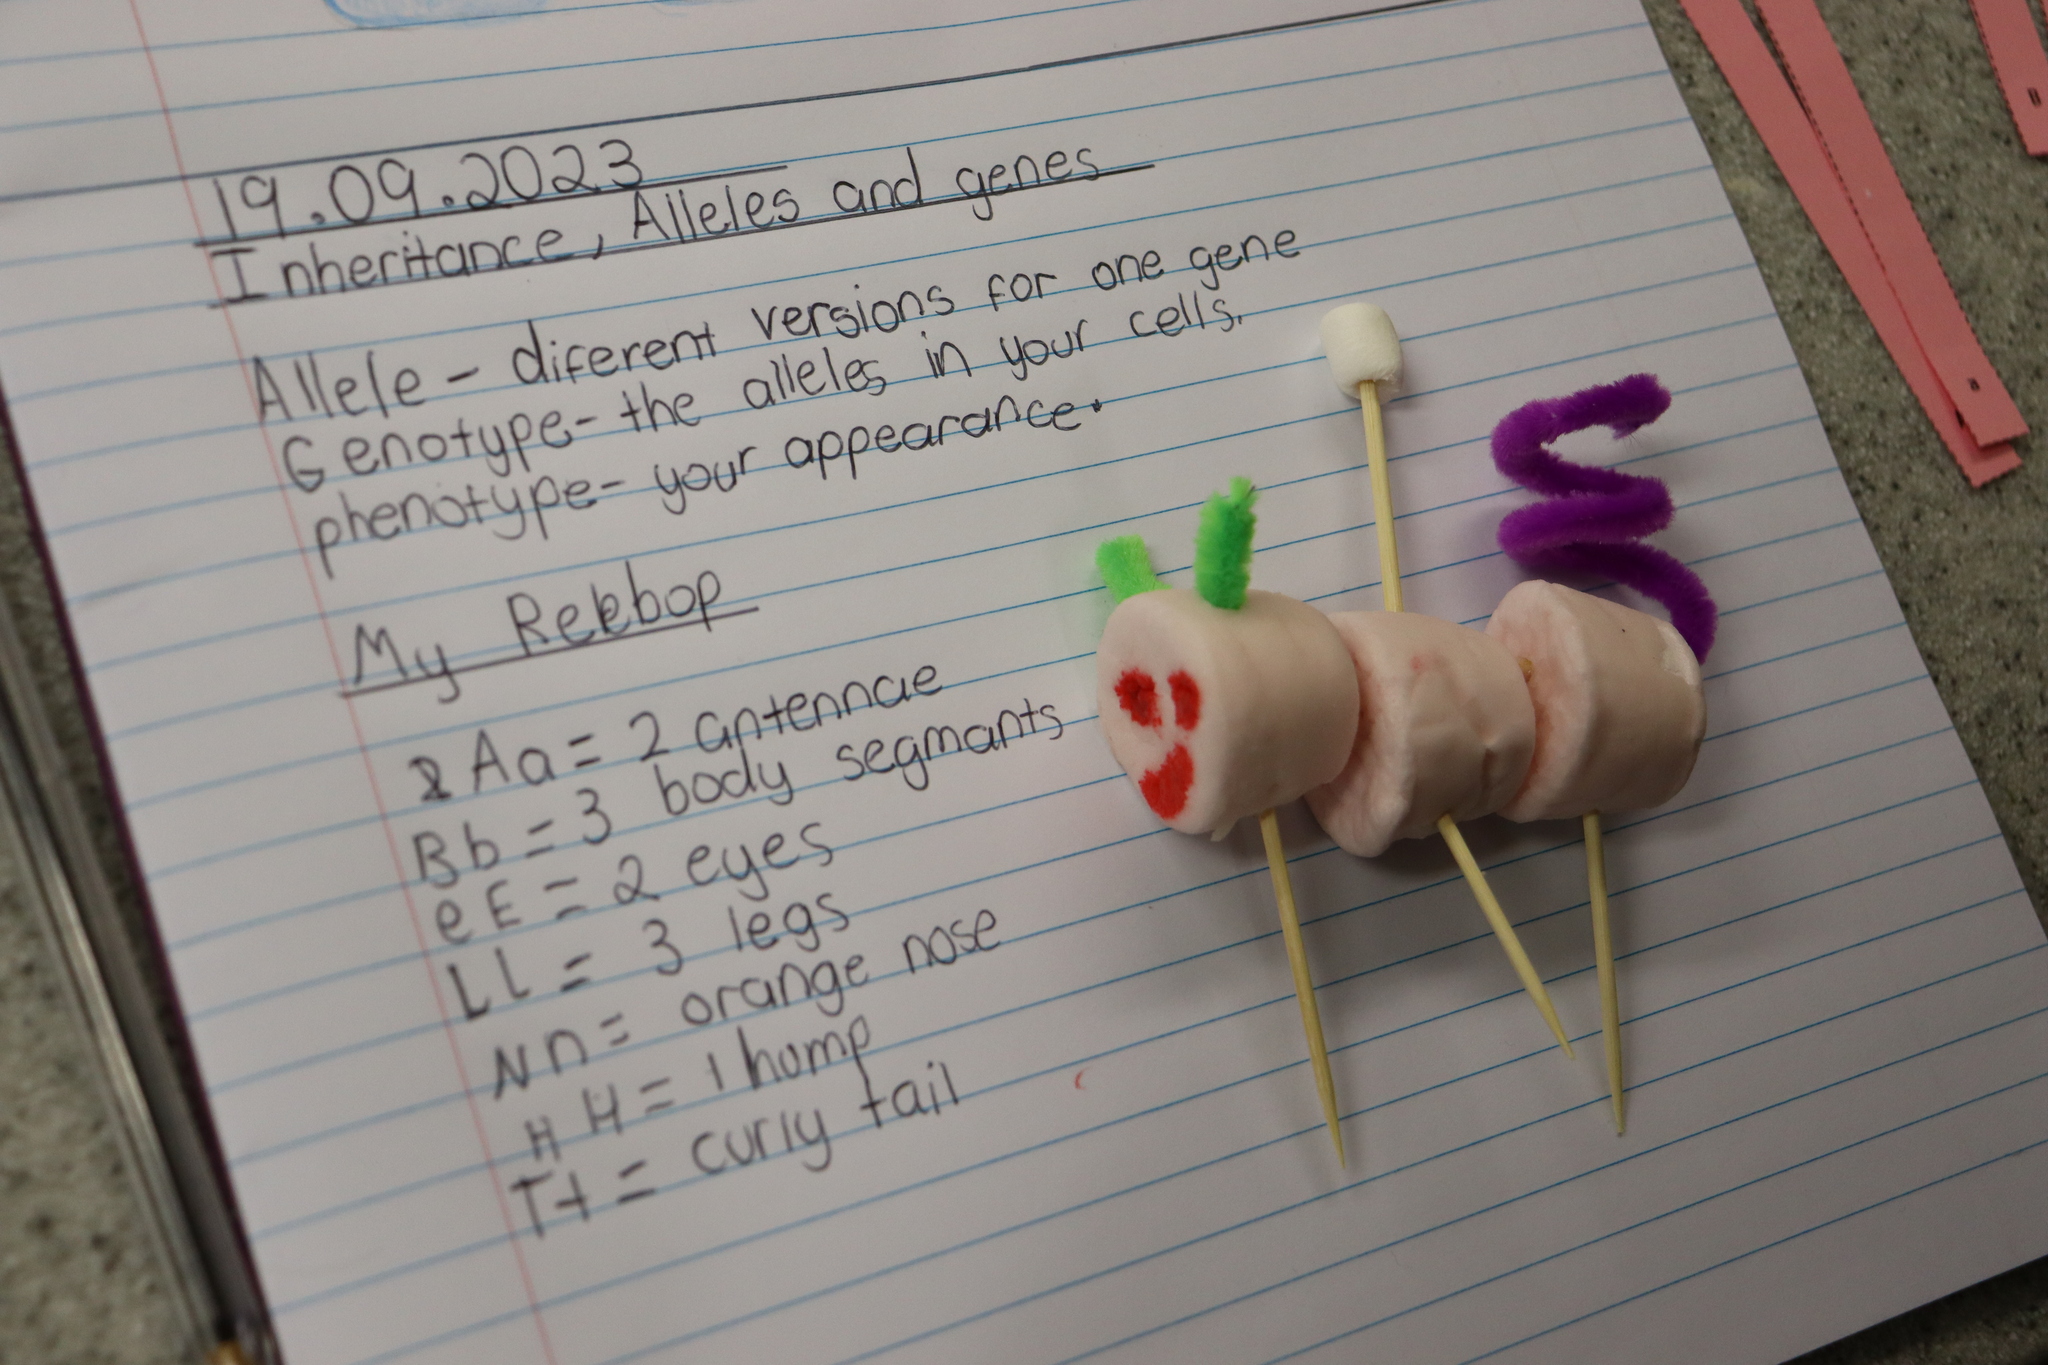 19.09.2023
Inheritance, Alleles and genes
Allele - diferent versions for one gene
Genotype- the alleles in your cells.
phenotype- your appearance.
My Rekbop
Aa = 2 antennae
Bb = 3 body segmants
eE = 2 eyes
Ll = 3 legs
Nn = orange nose
HH = 1 hump
Tt = curly tail